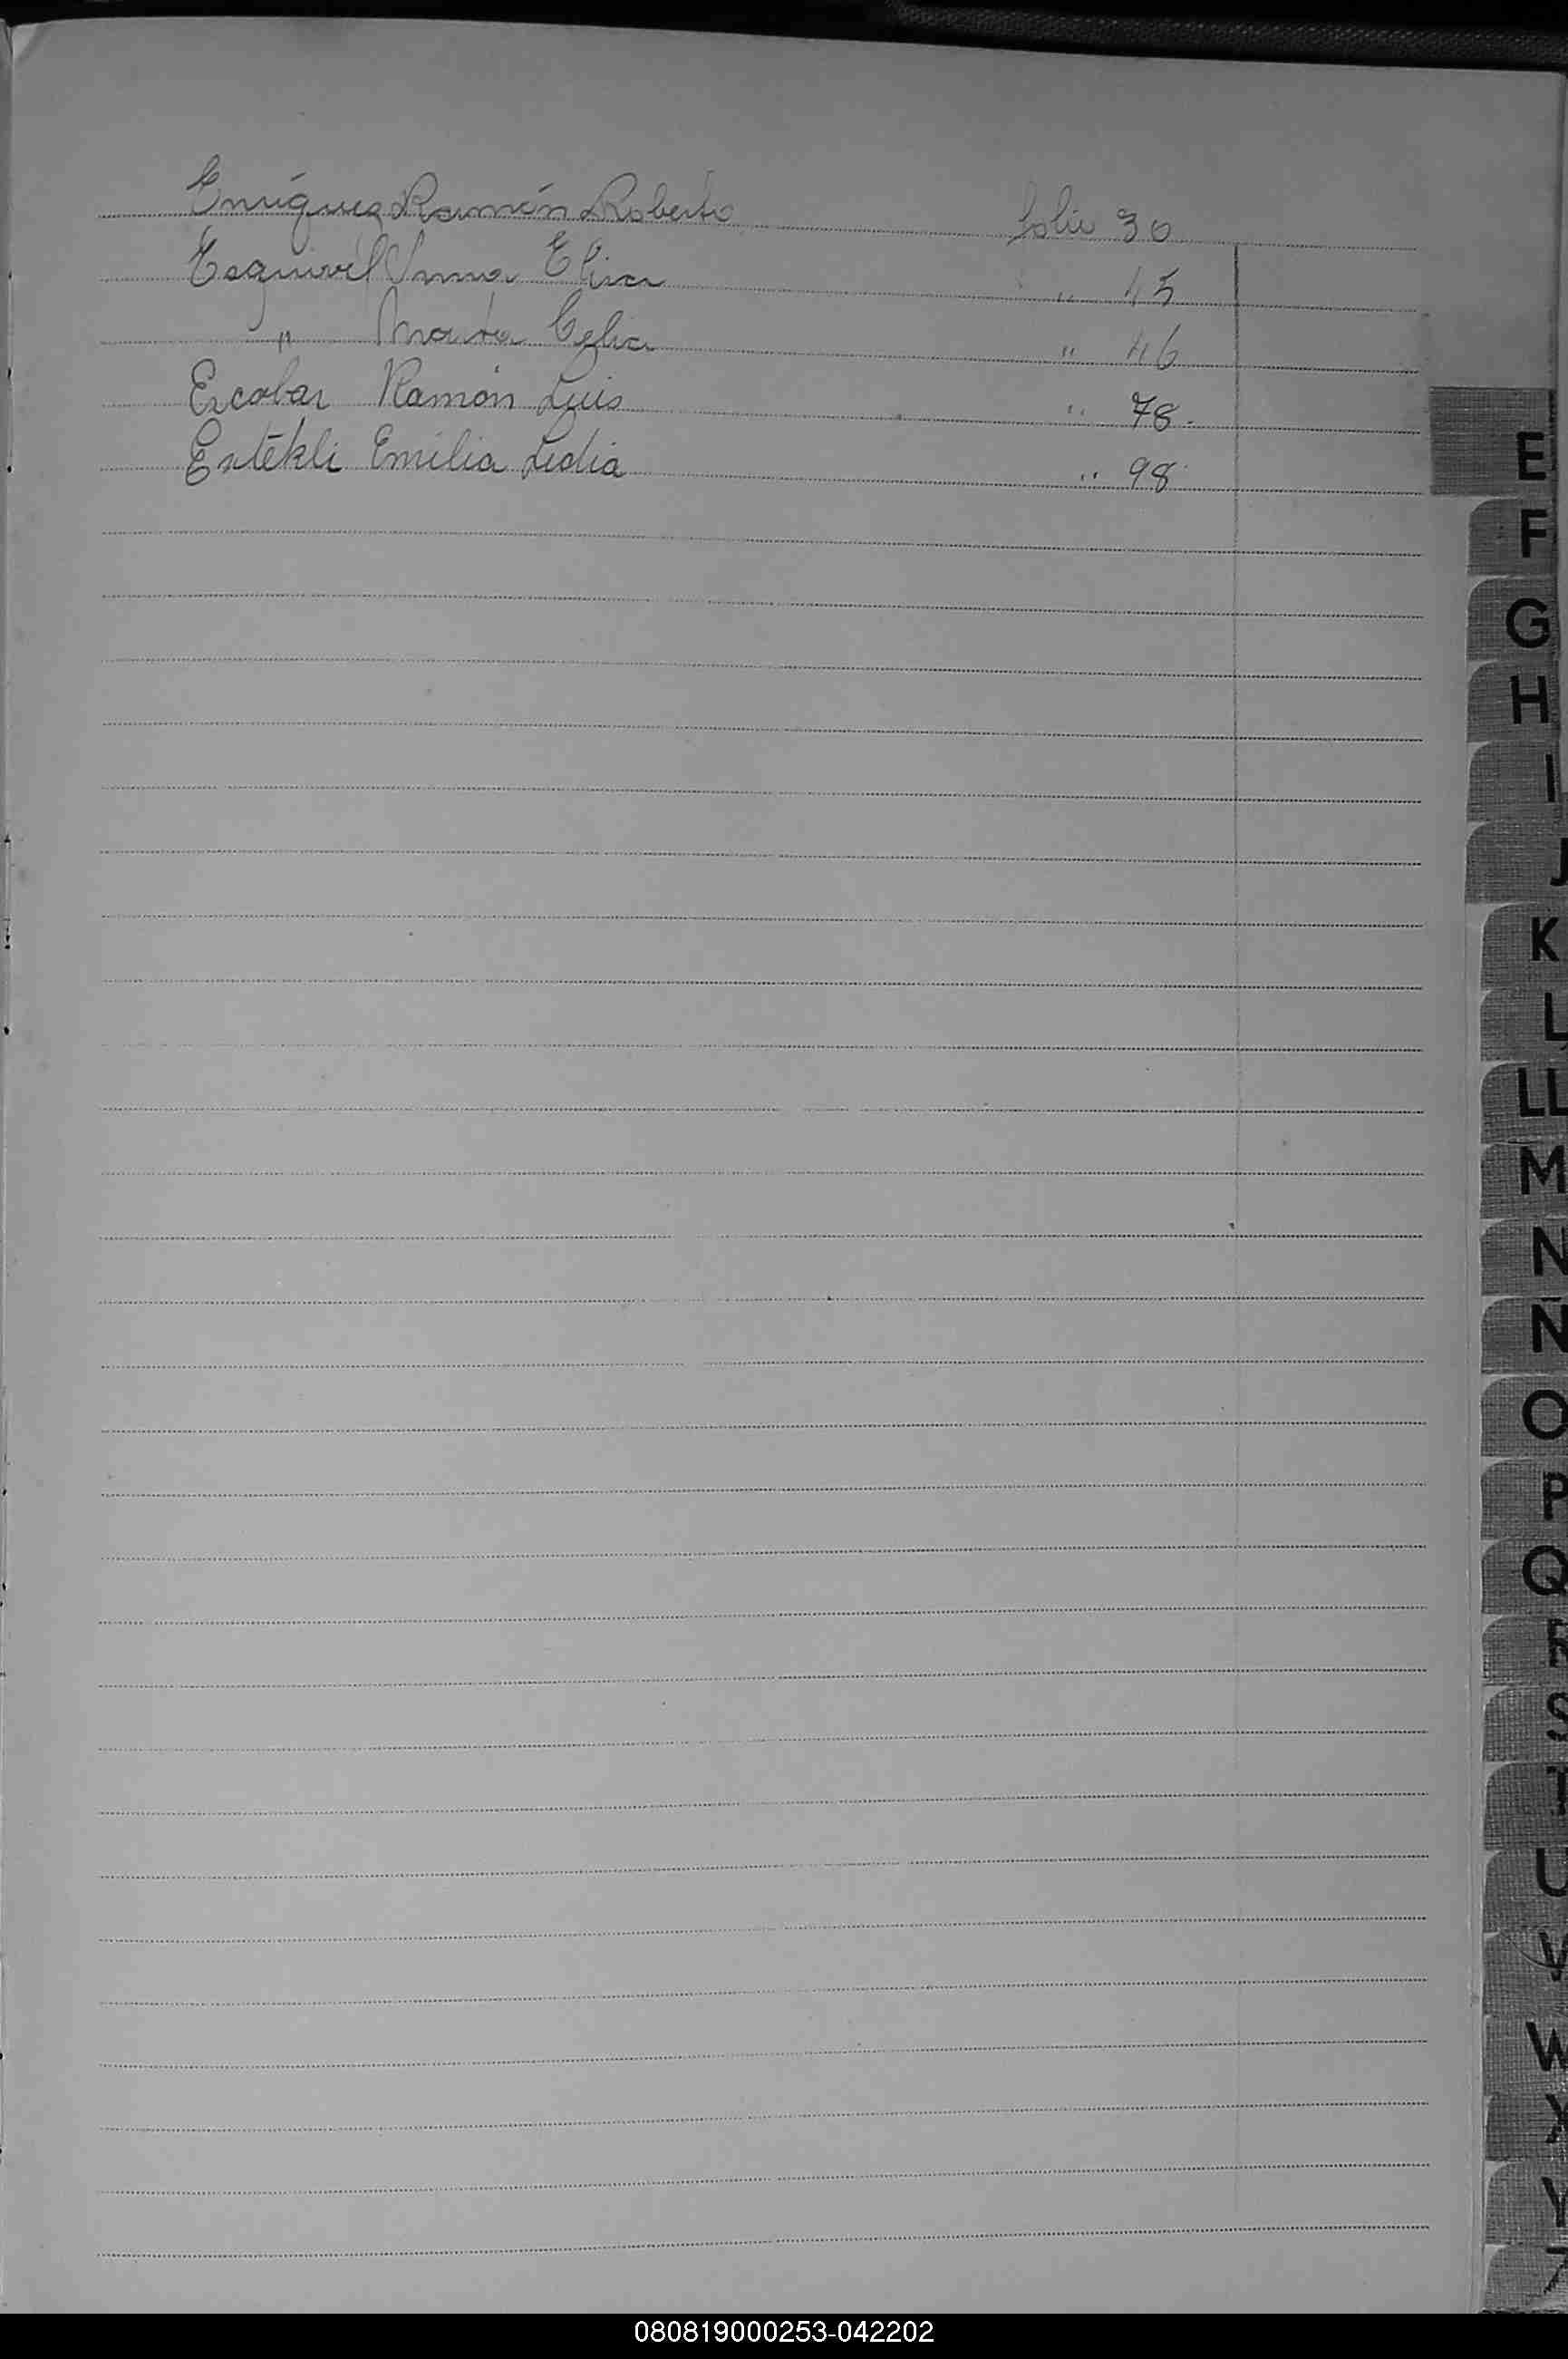 Enriquez Ramón Roberto folio 30
Esquivel Irma Elisa " 45
" Marta Celia " 46
Escobar Ramón Luis " 78.
Estékli Emilia Lidia " 98
E
F
G
H
I
J
K
L
LL
M
N
Ñ
O
P
Q
R
S
T
U
V
W
X
Y
Z
080819000253-042202